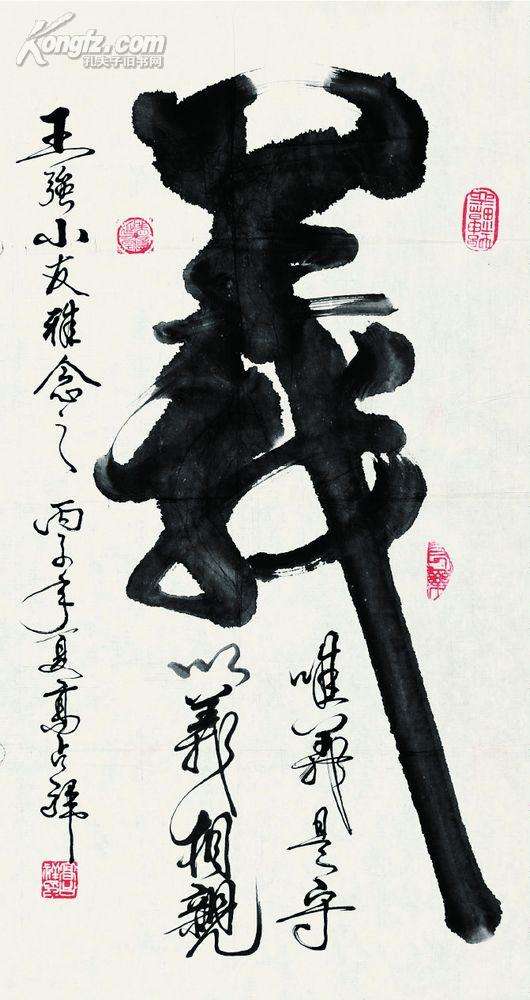 Kongfz.com
孔夫子旧书网
義
唯義是守
以義相親
王強小友雅念之
丙子年夏高占祥